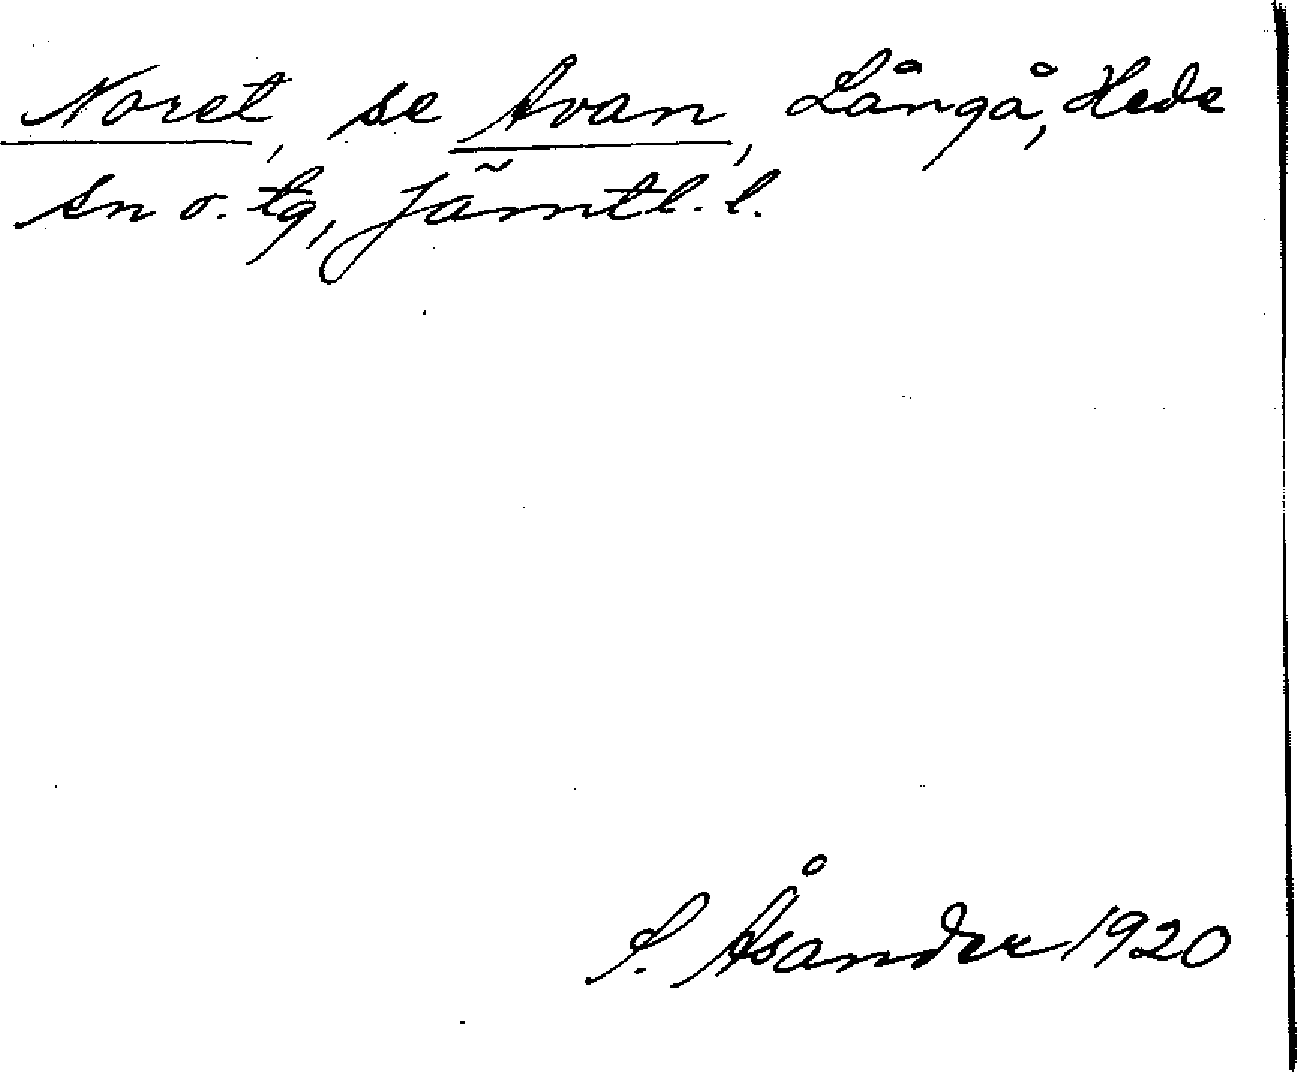 Noret, se Avan, Långå, Hede
sn o. tg, Jämtl. l.
S. Åsander 1920